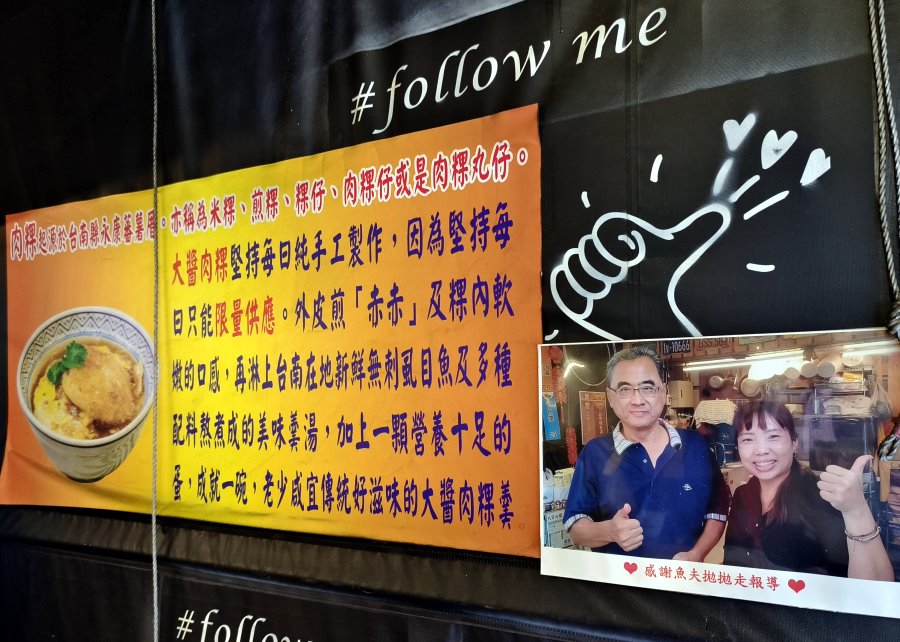 # follow me
肉粿起源於台南縣永康蕃薯厝。亦稱為米粿、煎粿、粿仔、肉粿仔或是肉粿丸仔。
大醬肉粿堅持每日純手工製作，因為堅持每
日只能限量供應。外皮煎「赤赤」及粿內軟
嫩的口感，再淋上台南在地新鮮無刺虱目魚及多種
配料熬煮成的美味羹湯，加上一顆營養十足的
蛋，成就一碗，老少咸宜傳統好滋味的大醬肉粿羹。
❤ 感謝魚夫拋拋走報導 ❤
# follow